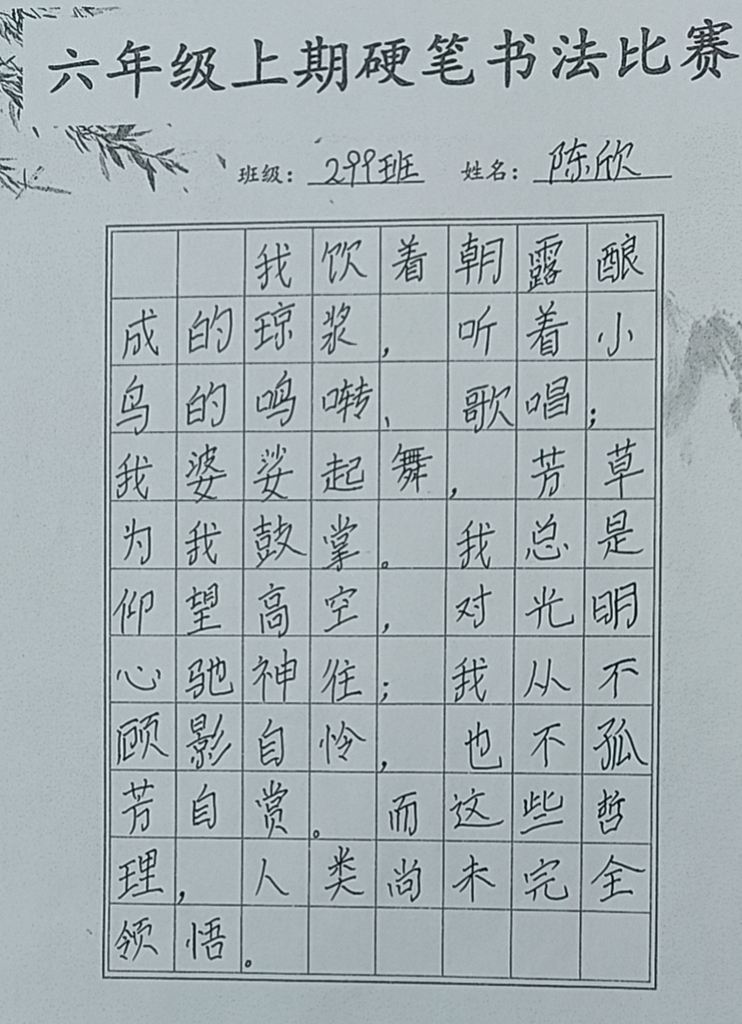 六年级上期硬笔书法比赛
班级：299班 姓名：陈欣
我饮着朝露酿
成的琼浆，听着小
鸟的鸣啭、歌唱；
我婆娑起舞，芳草
为我鼓掌。我总是
仰望高空，对光明
心驰神往；我从不
顾影自怜，也不孤
芳自赏。而这些哲
理，人类尚未完全
领悟。